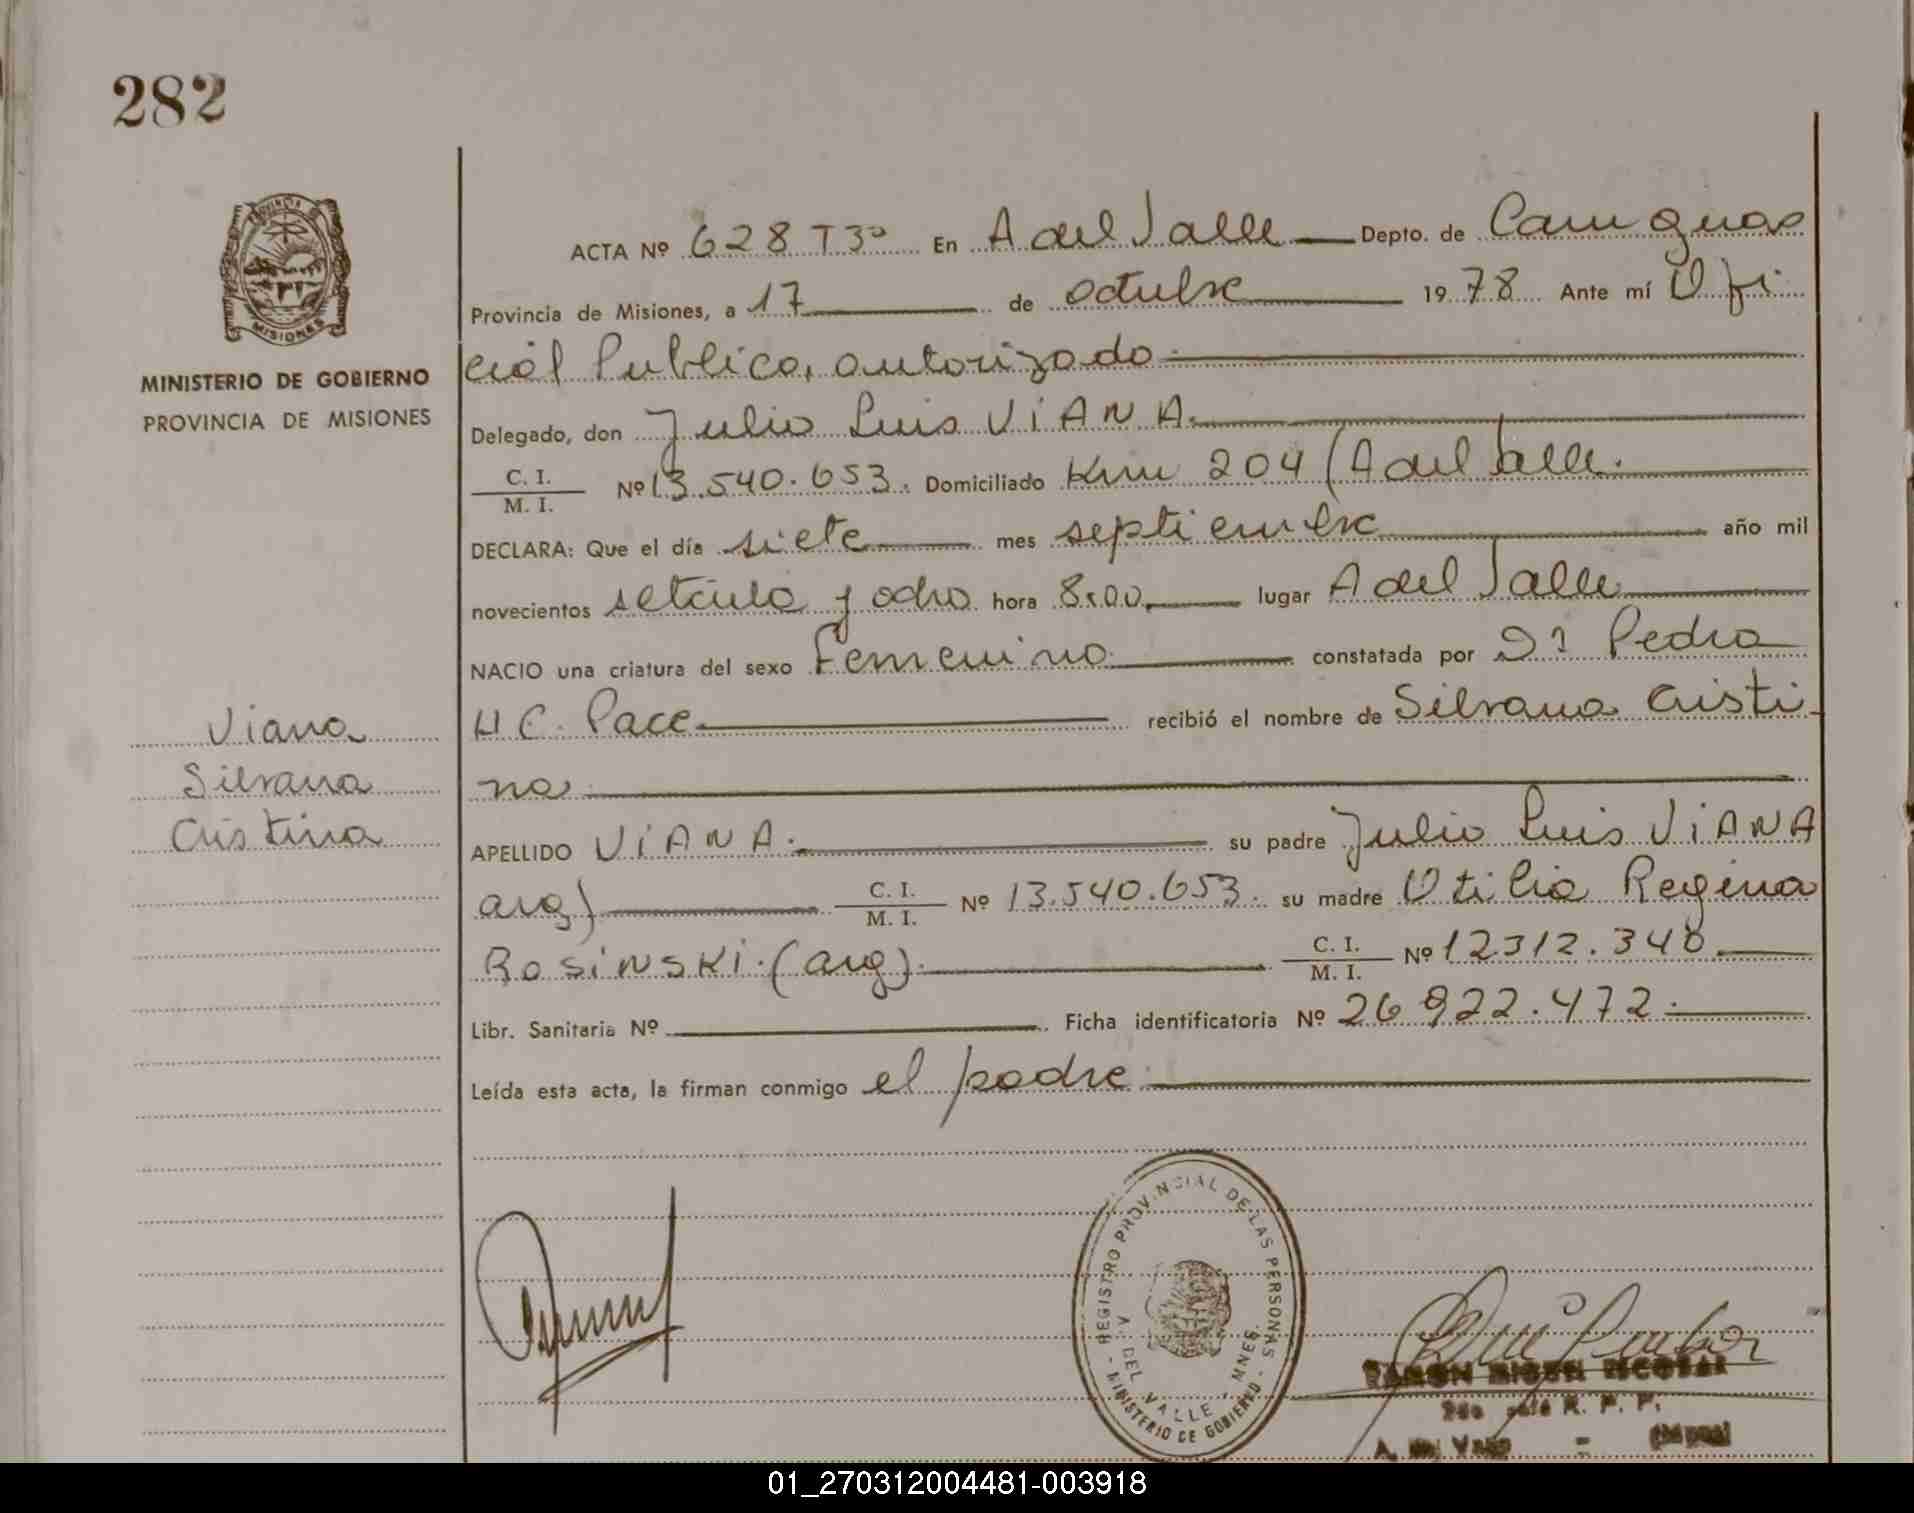 282
PROVINCIA DE
MISIONES
MINISTERIO DE GOBIERNO
PROVINCIA DE MISIONES
ACTA Nº 628 T3º En A del Valle Depto. de Cainguas
Provincia de Misiones, a 17 de octubre 1978 Ante mí Ofi
cial Publico, autorizado
Delegado, don Julio Luis ViANA.
C. I.
M. I. Nº 13.540.653. Domiciliado Km 204 (A del Valle.
DECLARA: Que el día siete mes septiembre año mil
novecientos setenta y ocho hora 8:00 lugar A del Valle
NACIO una criatura del sexo Femenino constatada por Pedro
H C. Pace recibió el nombre de Silvana Cristi
na
Viana
Silvana
Cristina
APELLIDO ViANA. su padre Julio Luis ViANA
arg) C. I.
M. I. Nº 13.540.653. su madre Otilia Regina
ROSiNSKi. (arg). C. I.
M. I. Nº 12312.340
Libr. Sanitaria Nº Ficha identificatoria Nº 26 922.472.
Leída esta acta, la firman conmigo el padre
- REGISTRO PROVINCIAL DE LAS PERSONAS
A. V. DEL VALLE - MNES.
- MINISTERIO DE GOBIERNO -
RAMON MIGUEL ESCOBAR
R. P. P.
A. del Valle - (Mnes)
01_270312004481-003918